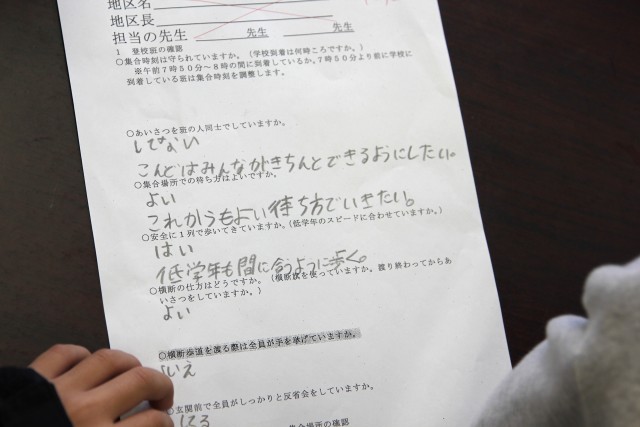 地区名
地区長
担当の先生 先生 先生
1 登校班の確認
○集合時刻は守られていますか。(学校到着は何時ころですか。)
※午前7時50分～8時の間に到着しているか。7時50分より前に学校に
到着している班は集合時刻を調整します。
○あいさつを班の人同士でしていますか。
してない
こんどはみんながきちんとできるようにしたい。
○集合場所での待ち方はよいですか。
よい
これからもよい待ち方でいきたい。
○安全に1列で歩いてきていますか。(低学年のスピードに合わせていますか。)
はい
低学年も間に合うように歩く。
○横断の仕方はどうですか。(横断旗を使っていますか。渡り終わってからあ
いさつをしていますか。)
よい
○横断歩道を渡る際は全員が手を挙げていますか。
いいえ
○玄関前で全員がしっかりと反省会をしていますか。
してる
集合場所の確認